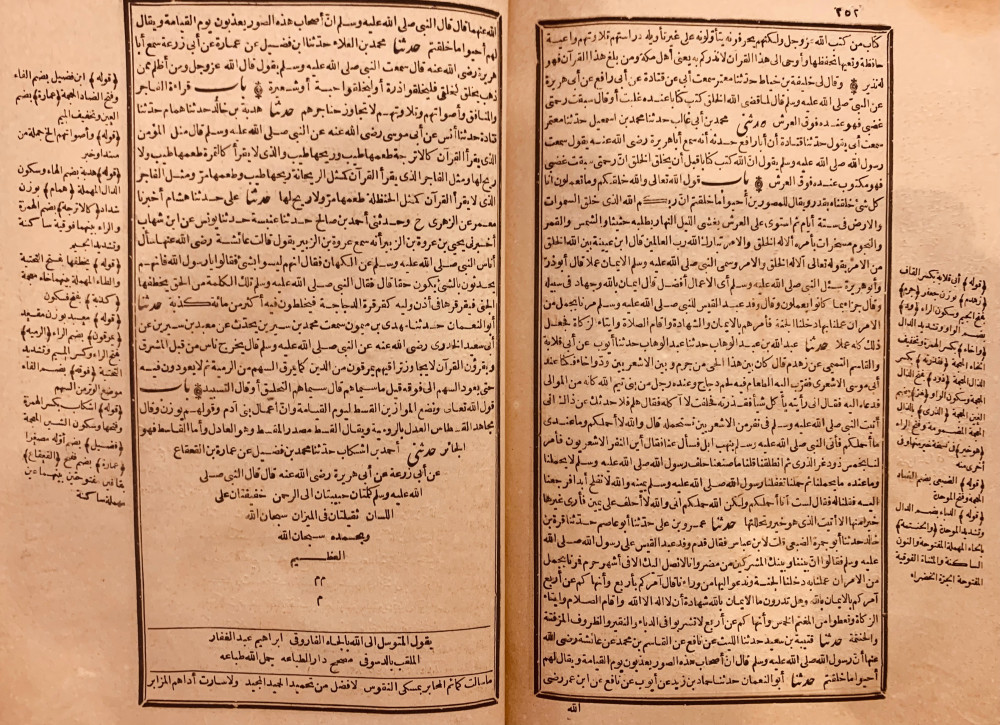 ٣٥٢
كتاب من كتب الله عز وجل ولكنهم يحرفونه يتأولونه على غير تأويله دراستهم تلاوتهم واعية
حافظة وتعيها تحفظها وأوحى الى هذا القرآن لانذركم به يعنى أهل مكة ومن بلغ هذا القرآن فهو
له نذير وقال لى خليفة بن خياط حدثنا معتمر سمعت أبى عن قتادة عن أبى رافع عن أبى هريرة
عن النبى صلى الله عليه وسلم قال لما قضى الله الخلق كتب كتابا عنده غلبت أو قال سبقت رحمتى
غضبى فهو عنده فوق العرش حدثنى محمد بن أبى غالب حدثنا محمد بن اسمعيل حدثنا معتمر
سمعت أبى يقول حدثنا قتادة أن أبا رافع حدثه أنه سمع أبا هريرة رضى الله عنه يقول سمعت
رسول الله صلى الله عليه وسلم يقول ان الله كتب كتابا قبل أن يخلق الخلق ان رحمتى سبقت غضبى
فهو مكتوب عنده فوق العرش باب قول الله تعالى والله خلقكم وما تعملون انا
كل شئ خلقناه بقدر ويقال للمصورين أحيوا ما خلقتم ان ربكم الله الذى خلق السموات
والارض فى ستة أيام ثم استوى على العرش يغشى الليل النهار يطلبه حثيثا والشمس والقمر
والنجوم مسخرات بأمره ألا له الخلق والامر تبارك الله رب العالمين قال ابن عيينة بين الله الخلق
من الامر بقوله تعالى ألا له الخلق والامر وسمى النبى صلى الله عليه وسلم الايمان عملا قال أبو ذر
وأبو هريرة سئل النبى صلى الله عليه وسلم أى الاعمال أفضل قال ايمان بالله وجهاد فى سبيله
وقال جزاء بما كانوا يعملون وقال وفد عبد القيس للنبى صلى الله عليه وسلم مرنا بجمل من
الامر ان عملنا بها دخلنا الجنة فأمرهم بالايمان والشهادة واقام الصلاة وايتاء الزكاة فجعل
ذلك كله عملا حدثنا عبد الله بن عبد الوهاب حدثنا عبد الوهاب حدثنا أيوب عن أبى قلابة
والقاسم التميمى عن زهدم قال كان بين هذا الحى من جرم وبين الاشعريين ود واخاء فكنا عند
أبى موسى الاشعرى فقرب اليه الطعام فيه لحم دجاج وعنده رجل من بنى تيم الله كأنه من الموالى
فدعاه اليه فقال انى رأيته يأكل شيأ فقذرته فحلفت لا آكله فقال هلم فلا حدثك عن ذاك انى
أتيت النبى صلى الله عليه وسلم فى نفر من الاشعريين نستحمله قال والله لا أحملكم وما عندى
ما أحملكم فأتى النبى صلى الله عليه وسلم بنهب ابل فسأل عنا فقال أين النفر الاشعريون فأمر
لنا بخمس ذود غر الذرى ثم انطلقنا قلنا ما صنعنا حلف رسول الله صلى الله عليه وسلم لا يحملنا
وما عنده ما يحملنا ثم حملنا تغفلنا رسول الله صلى الله عليه وسلم يمينه والله لا نفلح أبدا فرجعنا
اليه فقلنا له فقال لست أنا أحملكم ولكن الله حملكم انى والله لا أحلف على يمين فأرى غيرها
خيرا منها الا أتيت الذى هو خير وتحللتها حدثنا عمرو بن على حدثنا أبو عاصم حدثنا قرة بن
خالد حدثنا أبو جمرة الضبعى قلت لابن عباس فقال قدم وفد عبد القيس على رسول الله صلى الله
عليه وسلم فقالوا ان بيننا وبينك المشركين من مضر وانا لا نصل اليك الا فى أشهر حرم فمرنا بجمل
من الامر ان عملنا به دخلنا الجنة وندعو اليها من وراءنا قال آمركم بأربع وأنهاكم عن أربع
آمركم بالايمان بالله وهل تدرون ما الايمان بالله شهادة أن لا اله الا الله واقام الصلاة وايتاء
الزكاة وتعطوا من المغنم الخمس وأنهاكم عن أربع لا تشربوا فى الدباء والنقير والظروف المزفتة
والحنتمة حدثنا قتيبة بن سعيد حدثنا الليث عن نافع عن القاسم بن محمد عن عائشة رضى الله
عنها أن رسول الله صلى الله عليه وسلم قال ان أصحاب هذه الصور يعذبون يوم القيامة ويقال لهم
أحيوا ما خلقتم حدثنا أبو النعمان حدثنا حماد بن زيد عن أيوب عن نافع عن ابن عمر رضى
الله
(قوله) أبى قلابة بكسر القاف
(زهدم) بوزن جعفر (جرم)
بفتح الجيم وسكون الراء (ود)
بضم الواو وتشديد الدال
(واخاء) بكسر الهمزة وتخفيف
الخاء المعجمة (فقذرته) بكسر
المعجمة (ذود) بفتح الذال
المعجمة وسكون الواو
(الذرى) بضم الذال
المعجمة وفتح الراء
(قوله) الضبعى بضم الضاد
المعجمة وفتح الموحدة
(قوله) الدباء بضم الدال
وتشديد الموحدة (والحنتمة)
بالحاء المهملة المفتوحة والنون
الساكنة والمثناة الفوقية
المفتوحة الجرة الخضراء
الله عنهما قال قال النبى صلى الله عليه وسلم ان أصحاب هذه الصور يعذبون يوم القيامة ويقال
لهم أحيوا ما خلقتم حدثنا محمد بن العلاء حدثنا ابن فضيل عن عمارة عن أبى زرعة سمع أبا
هريرة رضى الله عنه قال سمعت النبى صلى الله عليه وسلم يقول قال الله عز وجل ومن أظلم ممن
ذهب يخلق كخلقى فليخلقوا ذرة أو ليخلقوا حبة أو شعيرة باب قراءة الفاجر
والمنافق وأصواتهم وتلاوتهم لا تجاوز حناجرهم حدثنا هدبة بن خالد حدثنا همام حدثنا
قتادة حدثنا أنس عن أبى موسى رضى الله عنه عن النبى صلى الله عليه وسلم قال مثل المؤمن
الذى يقرأ القرآن كالاترجة طعمها طيب وريحها طيب والذى لا يقرأ كالتمرة طعمها طيب ولا
ريح لها ومثل الفاجر الذى يقرأ القرآن كمثل الريحانة ريحها طيب وطعمها مر ومثل الفاجر
الذى لا يقرأ القرآن كمثل الحنظلة طعمها مر ولا ريح لها حدثنا على حدثنا هشام أخبرنا
معمر عن الزهرى ح وحدثنى أحمد بن صالح حدثنا عنبسة حدثنا يونس عن ابن شهاب
أخبرنى يحيى بن عروة بن الزبير أنه سمع عروة بن الزبير يقول قالت عائشة رضى الله عنها سأل
أناس النبى صلى الله عليه وسلم عن الكهان فقال انهم ليسوا بشئ فقالوا يا رسول الله فانهم
يحدثون بالشئ يكون حقا قال فقال النبى صلى الله عليه وسلم تلك الكلمة من الحق يخطفها
الجنى فيقرقرها فى أذن وليه كقرقرة الدجاجة فيخلطون فيه أكثر من مائة كذبة حدثنا
أبو النعمان حدثنا مهدى بن ميمون سمعت محمد بن سيرين يحدث عن معبد بن سيرين عن
أبى سعيد الخدرى رضى الله عنه عن النبى صلى الله عليه وسلم قال يخرج ناس من قبل المشرق
ويقرؤن القرآن لا يجاوز تراقيهم يمرقون من الدين كما يمرق السهم من الرمية ثم لا يعودون فيه
حتى يعود السهم الى فوقه قيل ما سيماهم قال سيماهم التحليق أو قال التسبيد باب
قول الله تعالى ونضع الموازين القسط ليوم القيامة وان أعمال بنى آدم وقولهم يوزن وقال
مجاهد القسطاس العدل بالرومية ويقال القسط مصدر المقسط وهو العادل وأما القاسط فهو
الجائر حدثنى أحمد بن اشكاب حدثنا محمد بن فضيل عن عمارة بن القعقاع
عن أبى زرعة عن أبى هريرة رضى الله عنه قال قال النبى صلى
الله عليه وسلم كلمتان حبيبتان الى الرحمن خفيفتان على
اللسان ثقيلتان فى الميزان سبحان الله
وبحمده سبحان الله
العظيم
م م
م
يقول المتوسل الى الله بالجاه الفاروقى ابراهيم عبد الغفار
الملقب بالدسوقى مصحح دار الطباعه جمل الله طباعه
ما سالت كمائم المحابر بمسكى النقوس لافضل من تحميد الحميد المجيد ولا سارت أداهم المزابر
(قوله) ابن فضيل بضم الفاء
وفتح الضاد المعجمة (عمارة) بضم
العين وتخفيف الميم
(قوله) وأصواتهم الخ جملة من
مبتدا وخبر
(قوله) هدبة بضم الهاء وسكون
الدال المهملة (همام) بوزن
شداد (كالاترجة) بضم الهمزة
والراء بينهما فوقية ساكنة
وتشديد الجيم
(قوله) يخطفها بفتح التحتية
والطاء المهملة بينهما خاء معجمة
(كذبة) بفتح فسكون
(قوله) معبد بوزن مقعد
(يمرقون) بضم الراء (الرمية)
بفتح الراء وكسر الميم وتشديد
التحتية (فوقه) بضم الفاء
موضع الوتر من السهم
(قوله) اشكاب بكسر الهمزة
وفتحها وسكون الشين المعجمة
(فضيل) بضم أوله مصغرا
(عمارة) بضم ففتح (القعقاع)
بقافين مفتوحتين بينهما عين
مهملة ساكنة